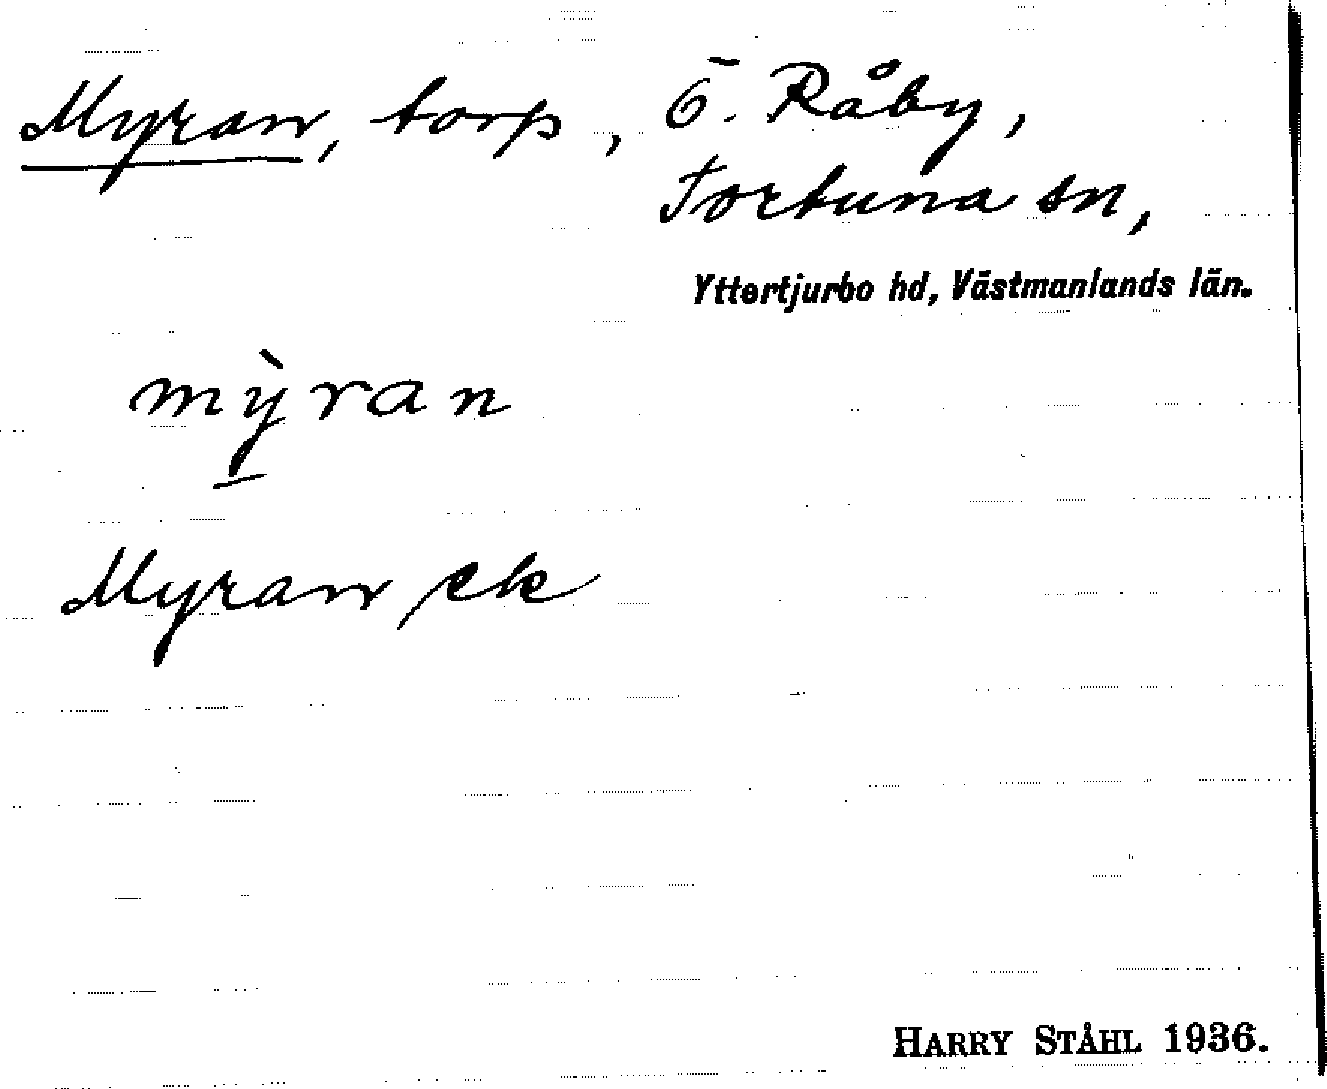 Myran, torp, Ö. Råby,
Tortuna sn,
Yttertjurbo hd, Västmanlands län.
mỳran
Myran ek
HARRY STÅHL 1936.